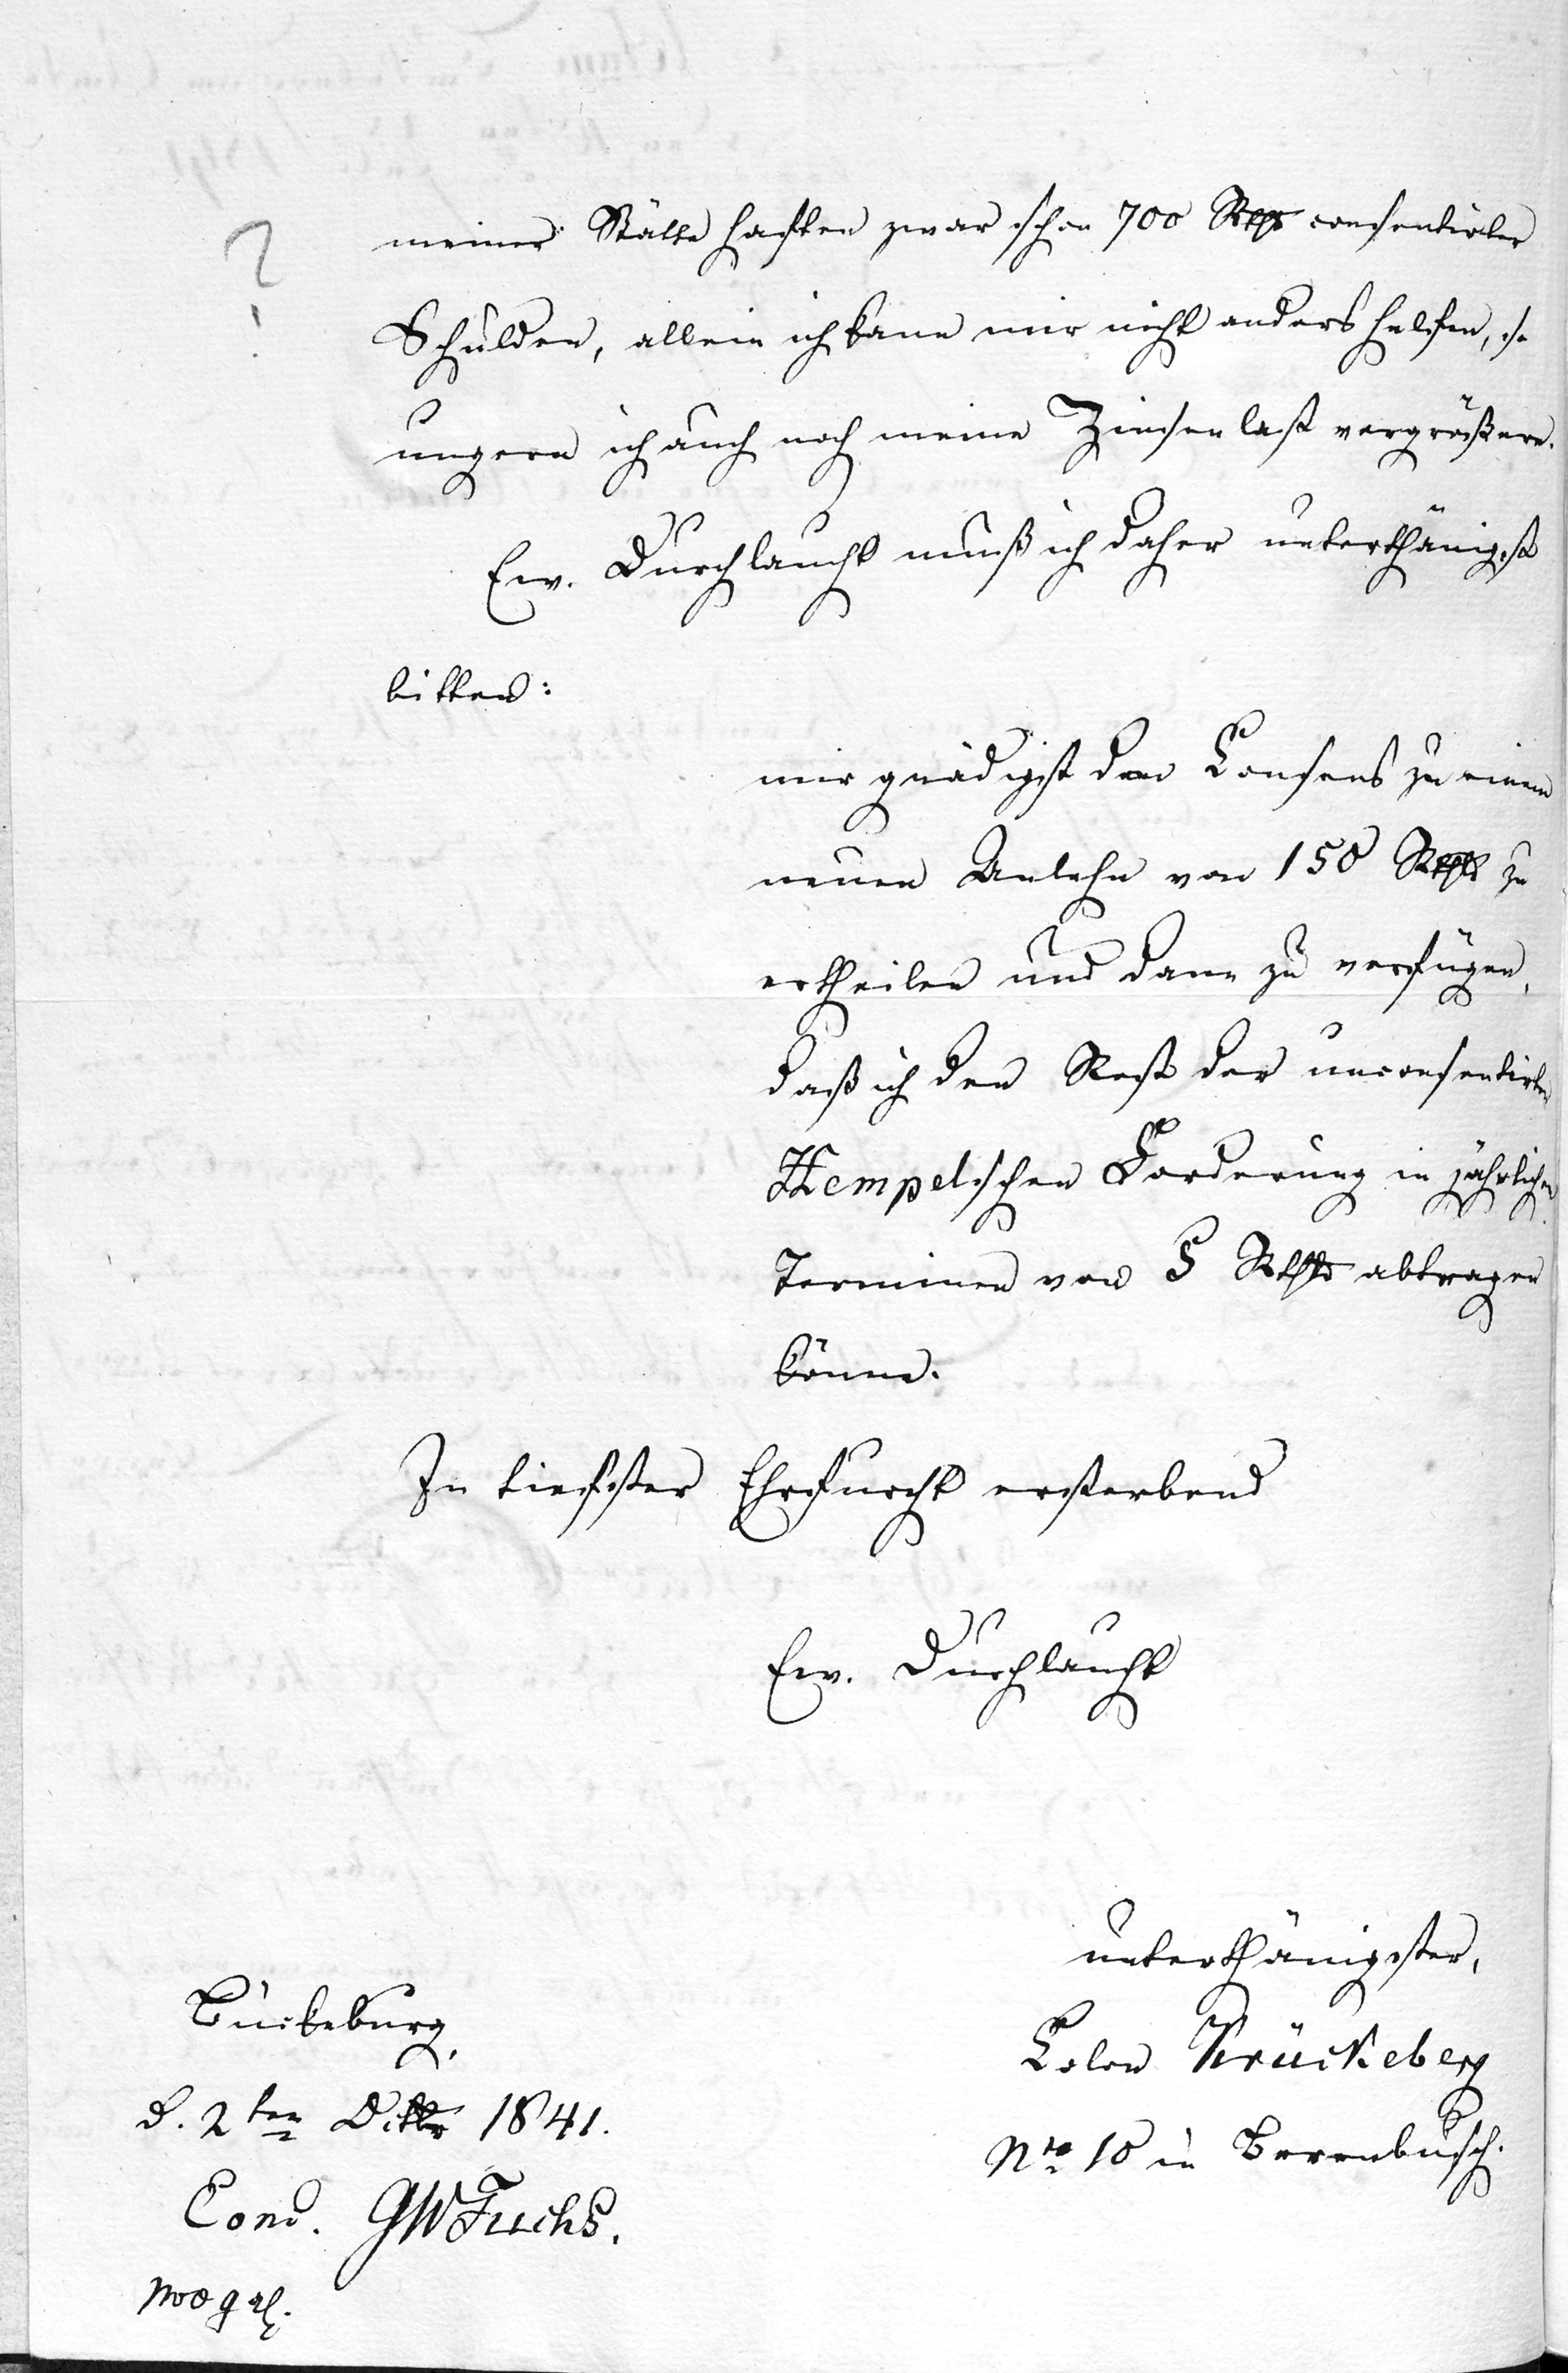 ?
meiner Stätte haften zwar schon 700 Rthlr consentirter
Schulden, allein ich kann mir nicht anders helfen, so
ungern ich auch noch meine Zinsenlast vergrößere.
Ew. Durchlaucht muß ich daher unterthänigst
bitten:
mir gnädigst den Consens zu einem
neuen Anlehn von 150 Rthlr zu
ertheilen und dann zu verfügen,
daß ich den Rest der unconsentirten
Hempelschen Forderung in jährlichen
Terminen von 5 Rthlr abtragen
könne.
In tiefster Ehrfurcht ersterbend
Ew. Durchlaucht
unterthänigster,
Colon Krückeberg
Nro 10 in Berenbusch.
Bückeburg,
d. 2ten Octbr 1841.
Conc. GWFuchs.